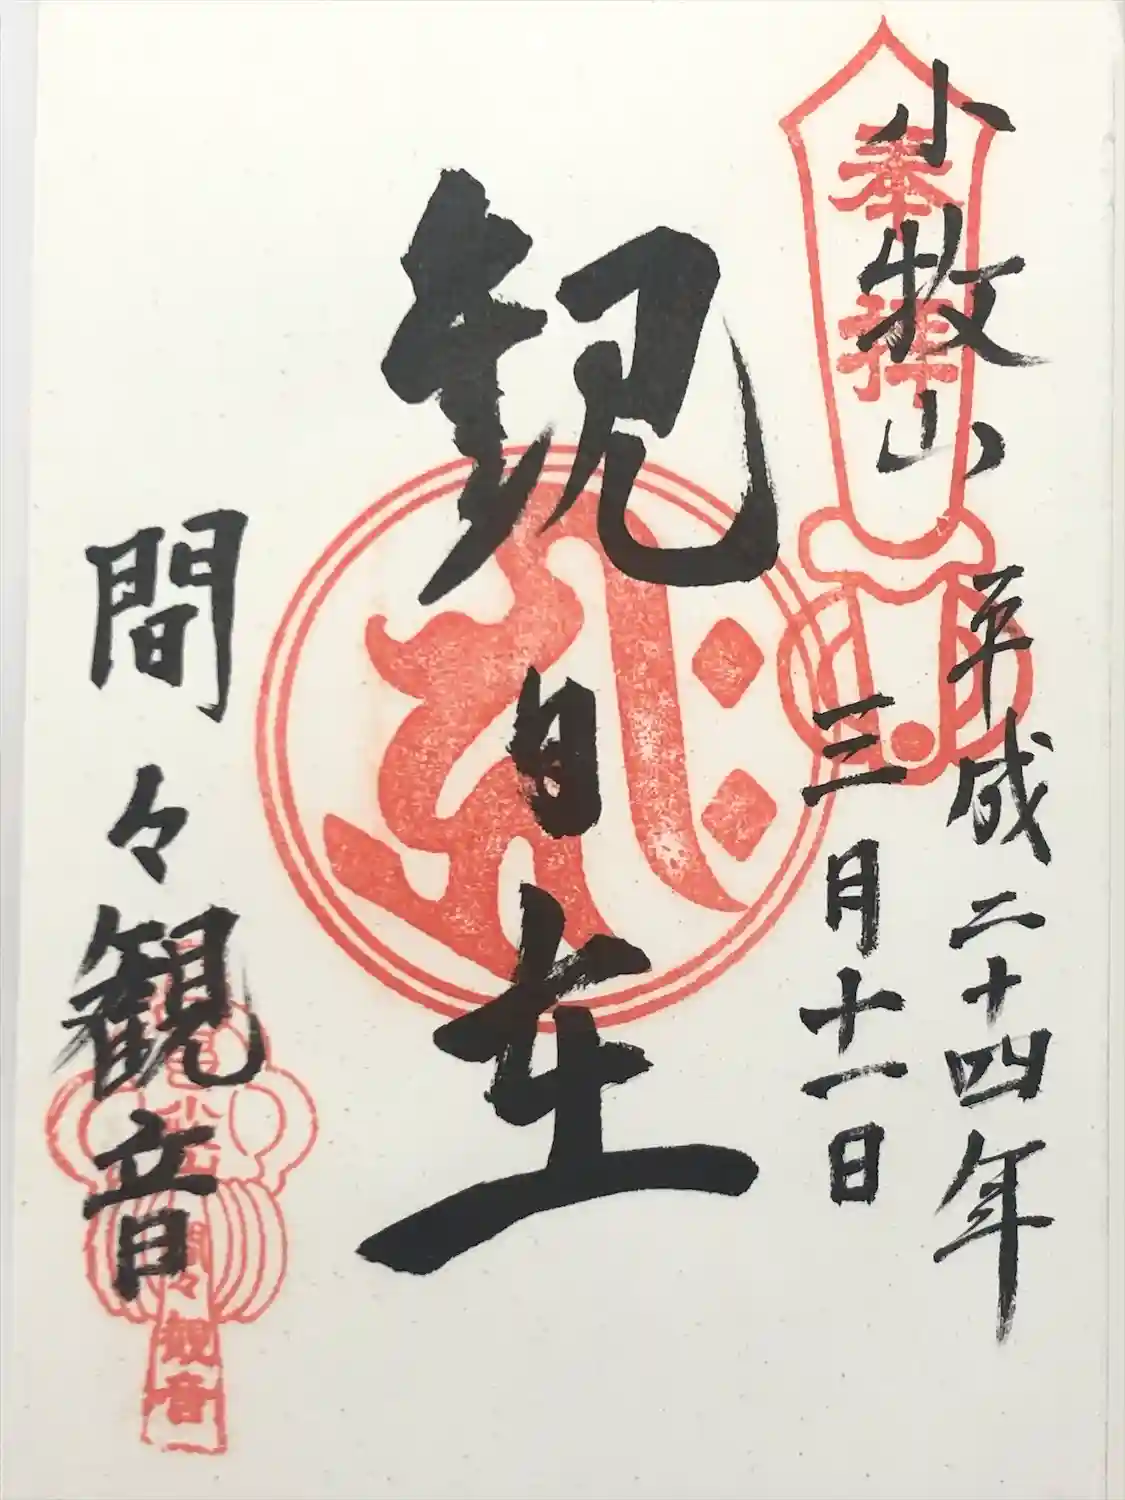 奉拝
小牧山
平成二十四年
三月十一日
観自在
間々観音
間々観音